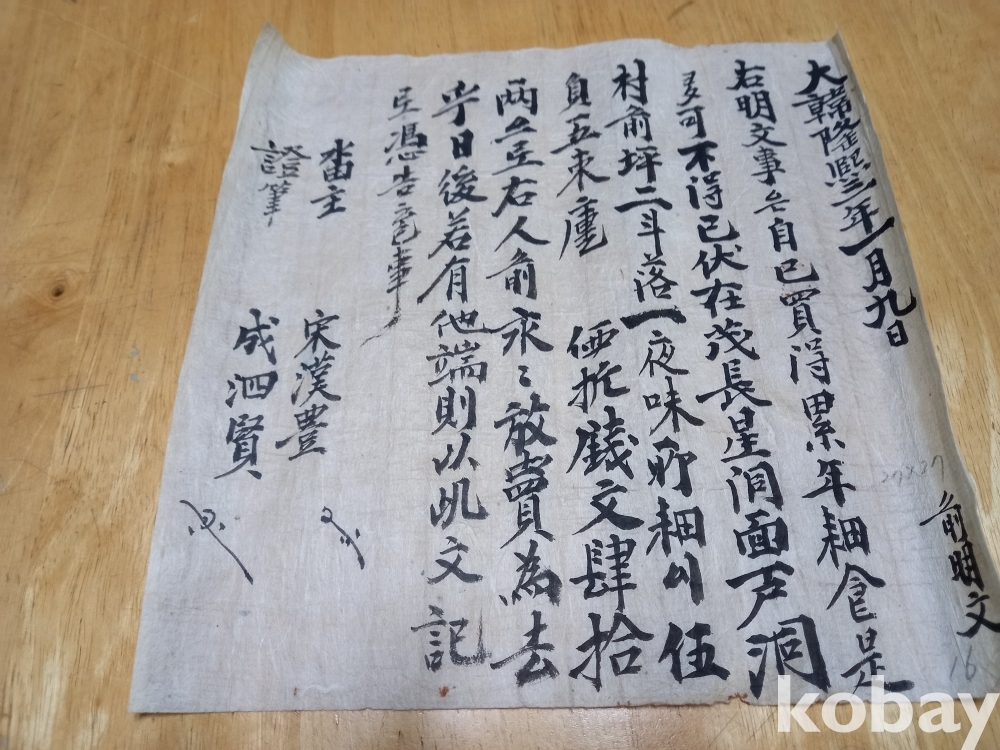 大韓隆熙三年一月九日 前明文
右明文事段自己買得累年耕食是
多可不得已伏在茂長星洞面戸洞
村前坪二斗落一夜味所耕 伍
負五束庫 価折錢文肆拾
兩 右人前永〻放賣為去
乎日後若有他端則以此文記
憑告官事
畓主 宋漢豊
證筆 成泗賢
27x37
16
kobay